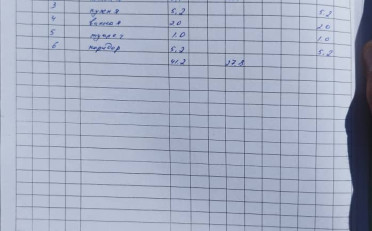 3 кухня 5.2 5.2
4 ванная 2.0 2.0
5 туалет 1.0 1.0
6 коридор 5.2 5.2
41.2 27.8